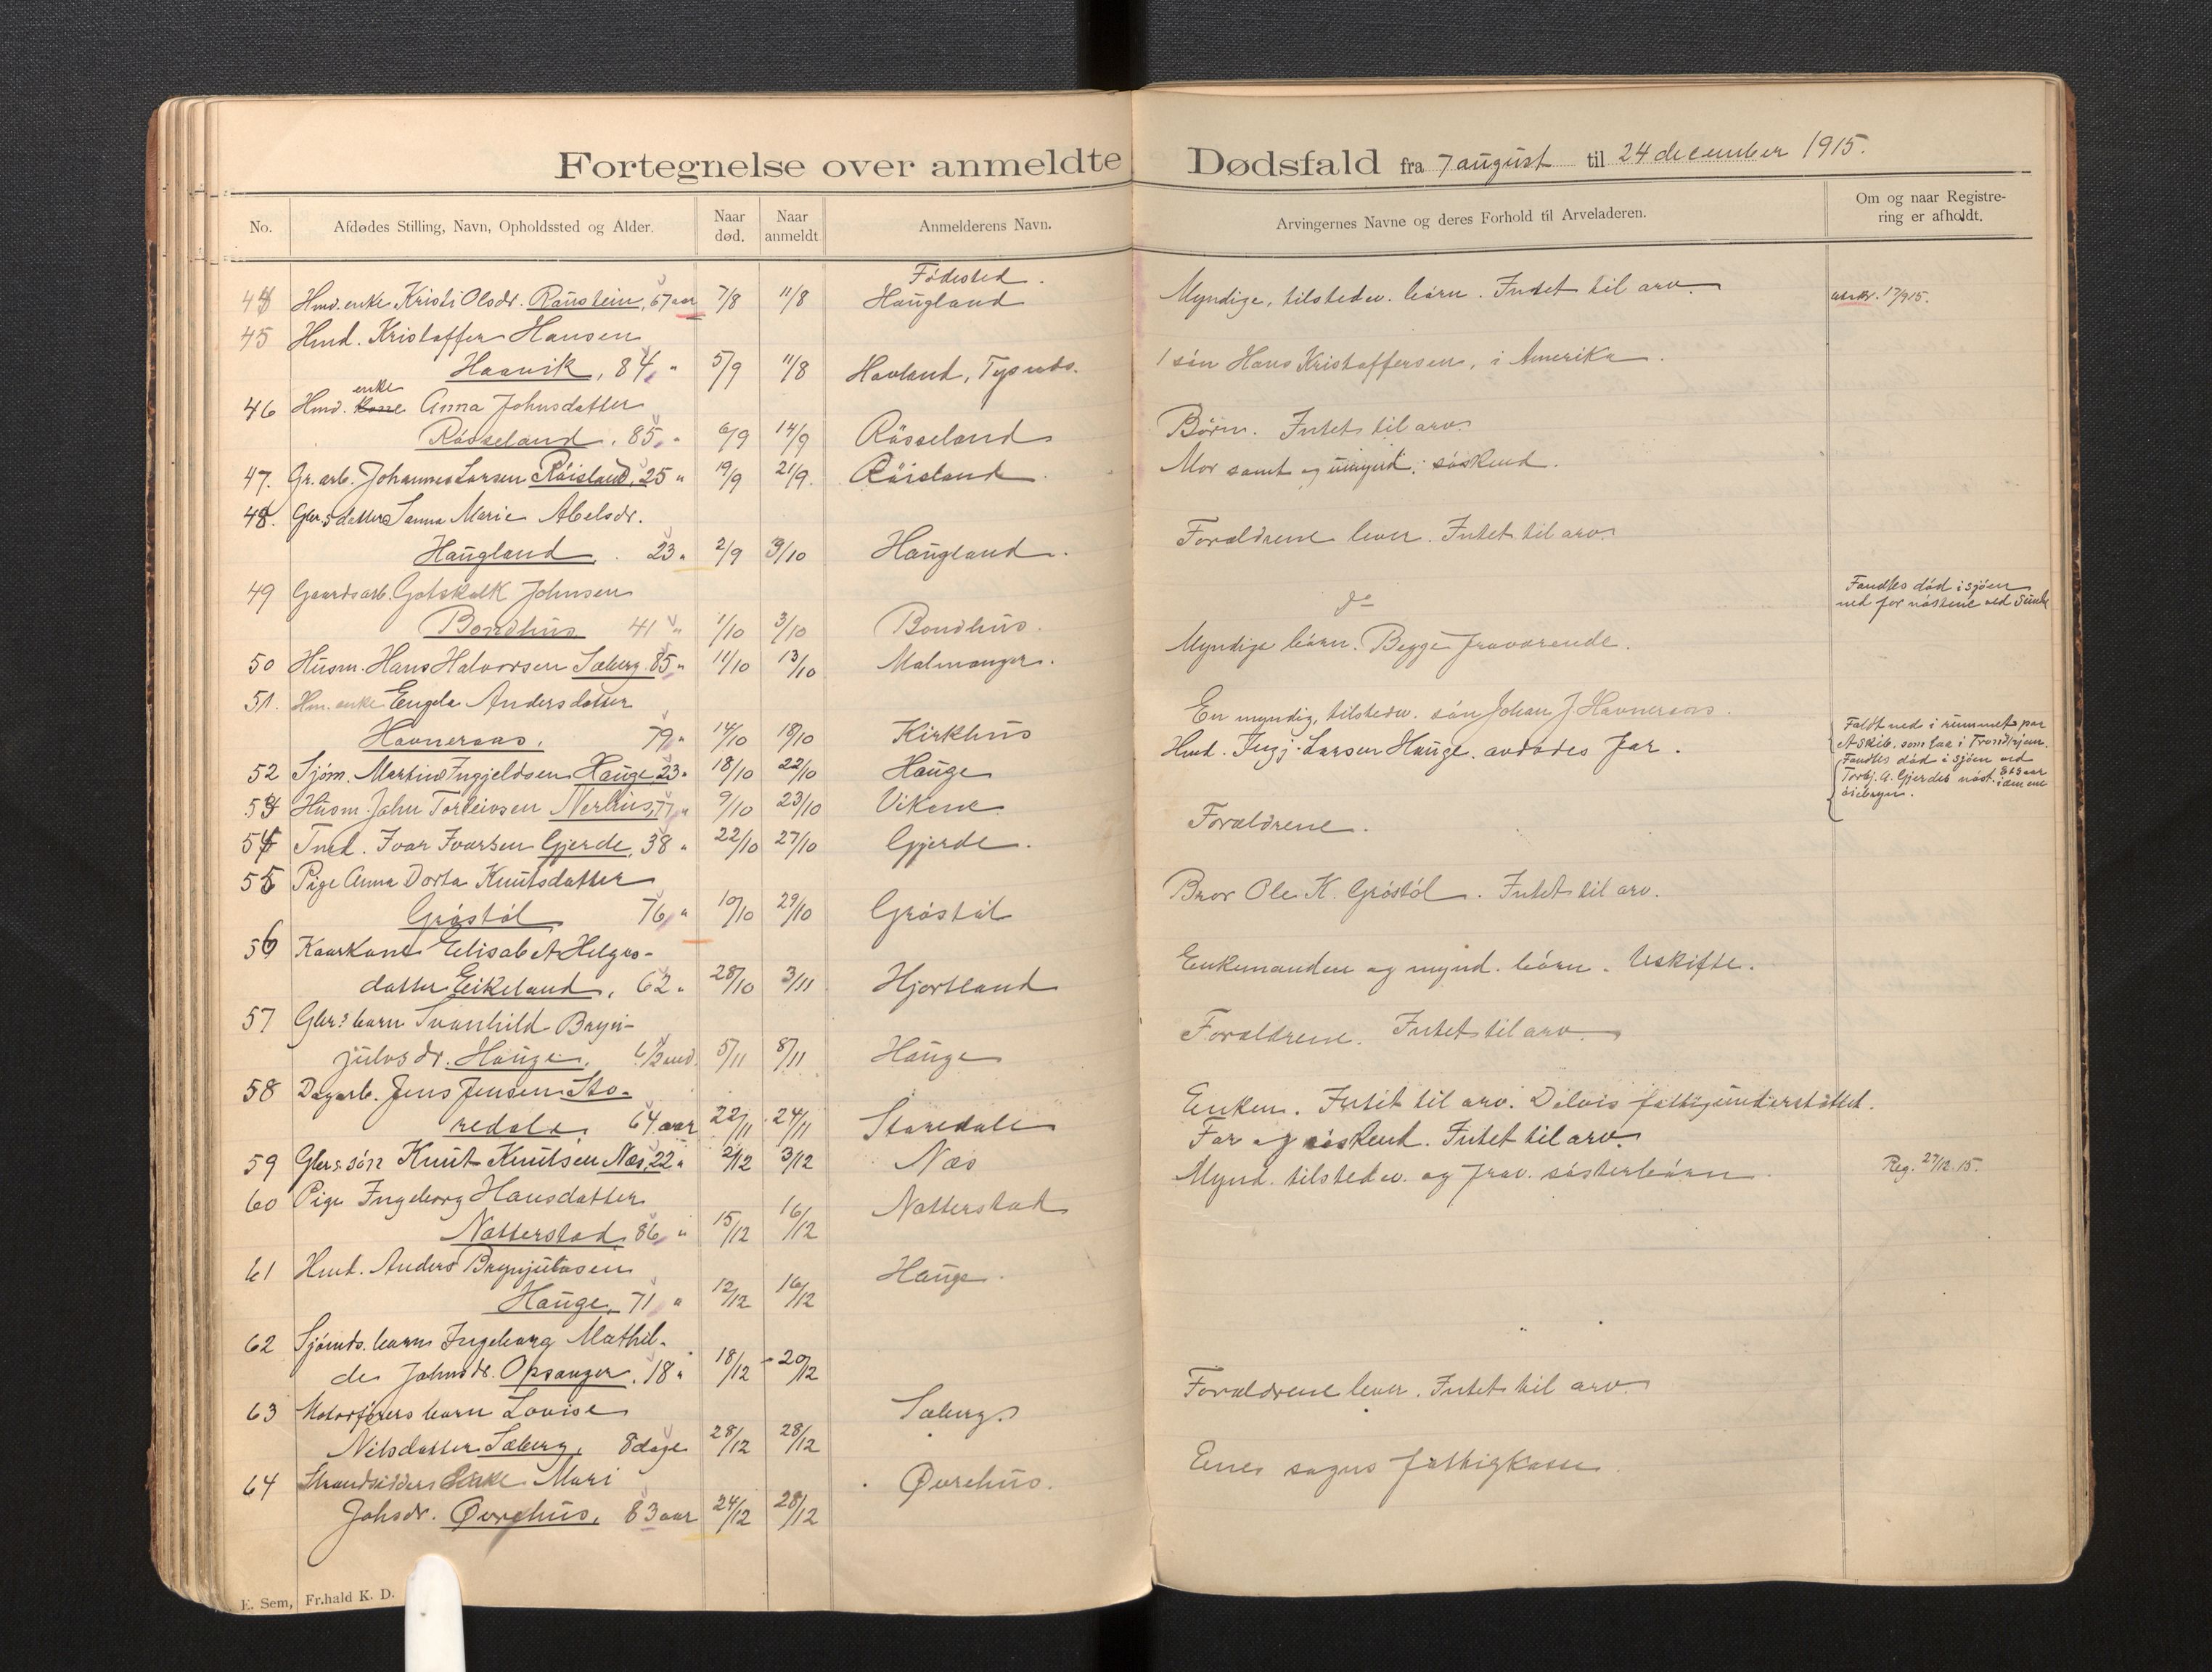 Fortegnelse over anmeldte Dødsfald fra 7 august til 24 december 1915.
No. Afdødes Stilling, Navn, Opholdssted og Alder. Naar død. Naar anmeldt Anmelderens Navn. Arvingernes Navne og deres Forhold til Arveladeren. Om og naar Registrering er afholdt.
Födested.
44 Hmd. enke Kristi Olsdr. Raustein, 67 aar 7/8 11/8 Haugland Myndige, tilstedev. börn. Intet til arv. 17/9 15.
45 Hmd. Kristoffer Hansen
Haavik, 84 " 5/9 11/8 Havland, Tysnes. 1 sön Hans Kristoffersen, i Amerika.
enke
46 Hmd. Kone Anna Johnsdatter
Rösseland, 85 " 6/9 14/9 Rösseland Börn. Intet til arv.
47. Gr. arb. Johannes Larsen Röisland, 25 " 19/9 21/9 Röisland Mor samt og umynd. söskend.
48. Gbr.s datter Sanna Marie Abelsdr.
Haugland 23 " 2/9 9/10 Haugland. Forældrene lever. Intet til arv.
49 Gaardsarb. Gotskalk Johnsen
Bondhus 41 " 1/10 3/10 Bondhus. do Fandtes död i sjöen
ned for nöstene ved Sunde
50 Husm. Hans Halvorsen Sæberg 85 " 11/10 13/10 Malmanger. Myndige börn. Begge fraværende.
51. Hm. enke Engela Andersdatter
Havneraas, 79 " 14/10 18/10 Kirkhus En myndig, tilstedev. sön Johan J Havneraas.
52 Sjöm. Martin Ingjeldsen Hauge 23 " 18/10 22/10 Hauge Hmd. Ingj. Larsen Hauge. avdödes far. Faldt ned i rummet paa
D/Skib. som laa i Trondhjem.
53 Husm. John Torleivsen Nerhus, 77 " 9/10 23/10 Vikene Fandtes död i sjöen ved
Torbj. G. Gjerdes nöst.
54 Tmd. Ivar Ivarsen Gjerde, 38 " 22/10 27/10 Gjerde. Forældrene.
55 Pige Anna Dorta Knutsdatter
Gröstöl 76 " 10/10 29/10 Gröstöl Bror Ole K. Gröstöl. Intet til arv.
56 Kaarkone Elisabet Helges-
datter Eikeland, 62 " 28/10 3/11 Hjortland Enkemanden og mynd. börn. Uskifte.
57 Gbr.s barn Svanhild Bryn-
julvsdr. Hauge, 5/11 8/11 Hauge Forældrene. Intet til arv.
58 Dagarb. Jens Jensen Sto-
redale, 64 aar 22/11 24/11 Storedale Enken. Intet til arv. Delvis fattigunderstöttet.
59 Gbr.s sön Knut Knutsen Næs, 22 " 2/12 3/12 Næs Far og söskend. Intet til arv.
60 Pige Ingeborg Hansdatter
Natterstad 86 " 15/12 16/12 Natterstad Mynd. tilstedev. og frav. sösterbörn. Reg. 27/12. 15.
61 Hmd. Anders Brynjulvsen
Hauge, 71 " 12/12 16/12 Hauge.
62 Sjömds. barn Ingeborg Mathil-
de Johnsdr. Opsanger, 18 " 18/12 20/12 Forældrene lever. Intet til arv.
63 Motorförers barn Lovise
Nilsdatter Sæberg, 8 dage 28/12 28/12 Sæberg
64 Strandsidders Enke Mari
Johsdr. Øvrehus, 83 aar 24/12 28/12 Øvrehus. Enes sogns fattigkasse.
E. Sem, Fr.hald K. D.